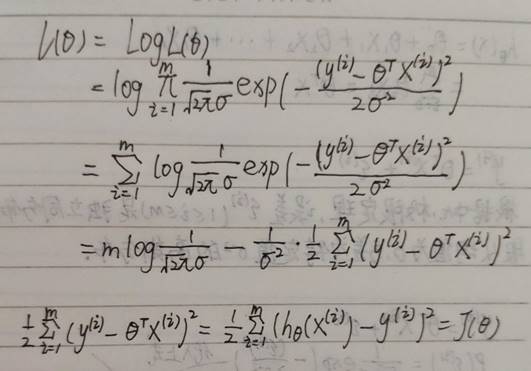 l(θ) = Log L(θ)
= log ∏_{i=1}^{m} \frac{1}{\sqrt{2π}σ} exp(-\frac{(y^{(i)} - θ^T x^{(i)})^2}{2σ^2})
= ∑_{i=1}^{m} log \frac{1}{\sqrt{2π}σ} exp(-\frac{(y^{(i)} - θ^T x^{(i)})^2}{2σ^2})
= m log \frac{1}{\sqrt{2π}σ} - \frac{1}{σ^2} · \frac{1}{2} ∑_{i=1}^{m} (y^{(i)} - θ^T x^{(i)})^2
\frac{1}{2} ∑_{i=1}^{m} (y^{(i)} - θ^T x^{(i)})^2 = \frac{1}{2} ∑_{i=1}^{m} (h_θ(x^{(i)}) - y^{(i)})^2 = J(θ)